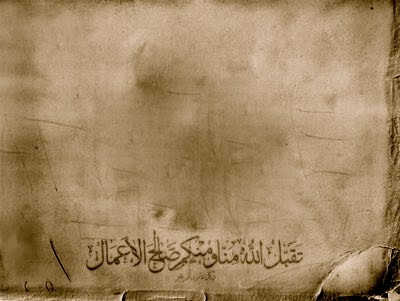 تقبل الله منا ومنكم صالح الأعمال